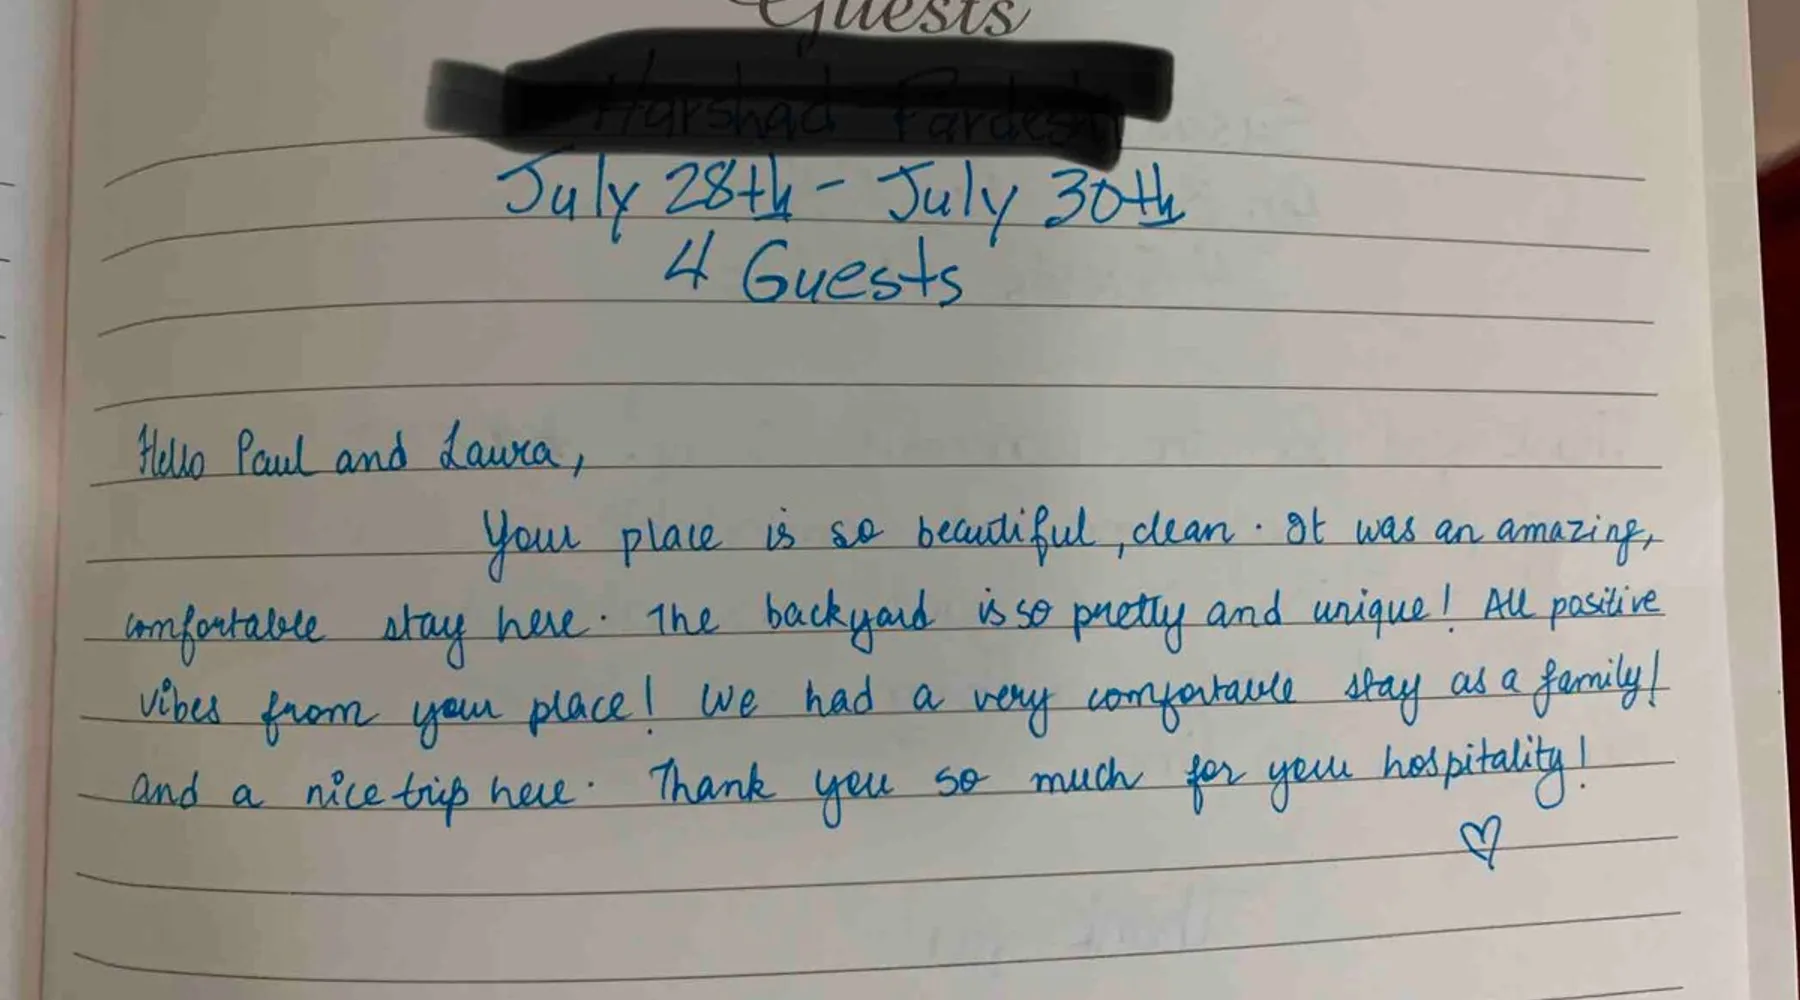 Guests
July 28th - July 30th
4 Guests
Hello Paul and Laura,
Your place is so beautiful, clean. It was an amazing,
comfortable stay here. The backyard is so pretty and unique! All positive
vibes from your place! We had a very comfortable stay as a family!
and a nice trip here. Thank you so much for your hospitality!